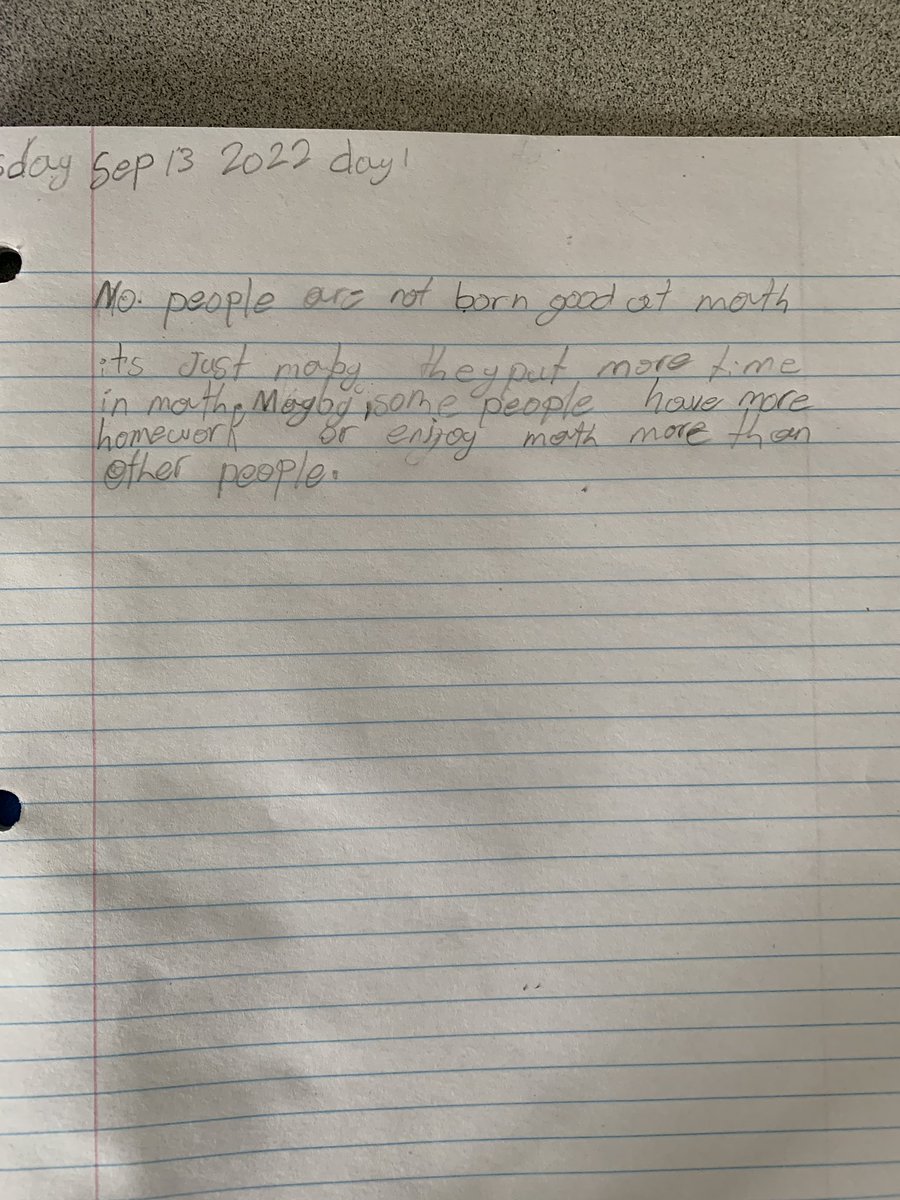 sday Sep 13 2022 day 1
No. people are not born good at math
its Just maby they put more time
in math. Mayby, some people have more
homework or enjoy math more than
other people.